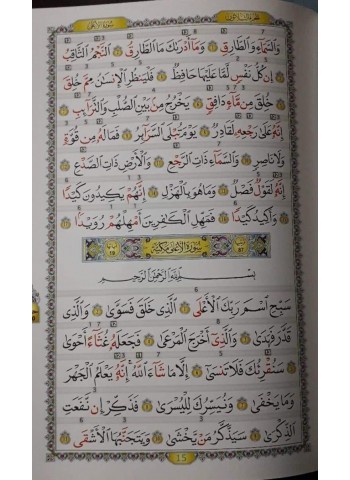 سورة الأعلى
وَالسَّمَاءِ وَالطَّارِقِ ۝ وَمَا أَدْرَىٰكَ مَا الطَّارِقُ ۝ النَّجْمُ الثَّاقِبُ
۝ إِن كُلُّ نَفْسٍ لَّمَّا عَلَيْهَا حَافِظٌ ۝ فَلْيَنظُرِ الْإِنسَٰنُ مِمَّ خُلِقَ
۝ خُلِقَ مِن مَّاءٍ دَافِقٍ ۝ يَخْرُجُ مِن بَيْنِ الصُّلْبِ وَالتَّرَائِبِ
۝ إِنَّهُ عَلَىٰ رَجْعِهِ لَقَادِرٌ ۝ يَوْمَ تُبْلَى السَّرَائِرُ ۝ فَمَا لَهُ مِن قُوَّةٍ
وَلَا نَاصِرٍ ۝ وَالسَّمَاءِ ذَاتِ الرَّجْعِ ۝ وَالْأَرْضِ ذَاتِ الصَّدْعِ
۝ إِنَّهُ لَقَوْلٌ فَصْلٌ ۝ وَمَا هُوَ بِالْهَزْلِ ۝ إِنَّهُمْ يَكِيدُونَ كَيْدًا
۝ وَأَكِيدُ كَيْدًا ۝ فَمَهِّلِ الْكَٰفِرِينَ أَمْهِلْهُمْ رُوَيْدًا ۝
سورة الأعلى مكية
بِسْمِ اللَّهِ الرَّحْمَٰنِ الرَّحِيمِ
سَبِّحِ اسْمَ رَبِّكَ الْأَعْلَى ۝ الَّذِي خَلَقَ فَسَوَّىٰ ۝ وَالَّذِي
قَدَّرَ فَهَدَىٰ ۝ وَالَّذِي أَخْرَجَ الْمَرْعَىٰ ۝ فَجَعَلَهُ غُثَاءً أَحْوَىٰ
۝ سَنُقْرِئُكَ فَلَا تَنسَىٰ ۝ إِلَّا مَا شَاءَ اللَّهُ إِنَّهُ يَعْلَمُ الْجَهْرَ
وَمَا يَخْفَىٰ ۝ وَنُيَسِّرُكَ لِلْيُسْرَىٰ ۝ فَذَكِّرْ إِن نَّفَعَتِ
الذِّكْرَىٰ ۝ سَيَذَّكَّرُ مَن يَخْشَىٰ ۝ وَيَتَجَنَّبُهَا الْأَشْقَى
15